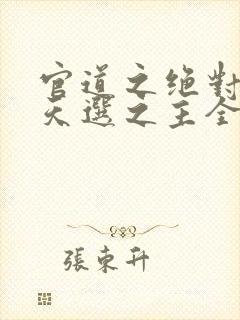 官道之绝對
天選之主全
張東升